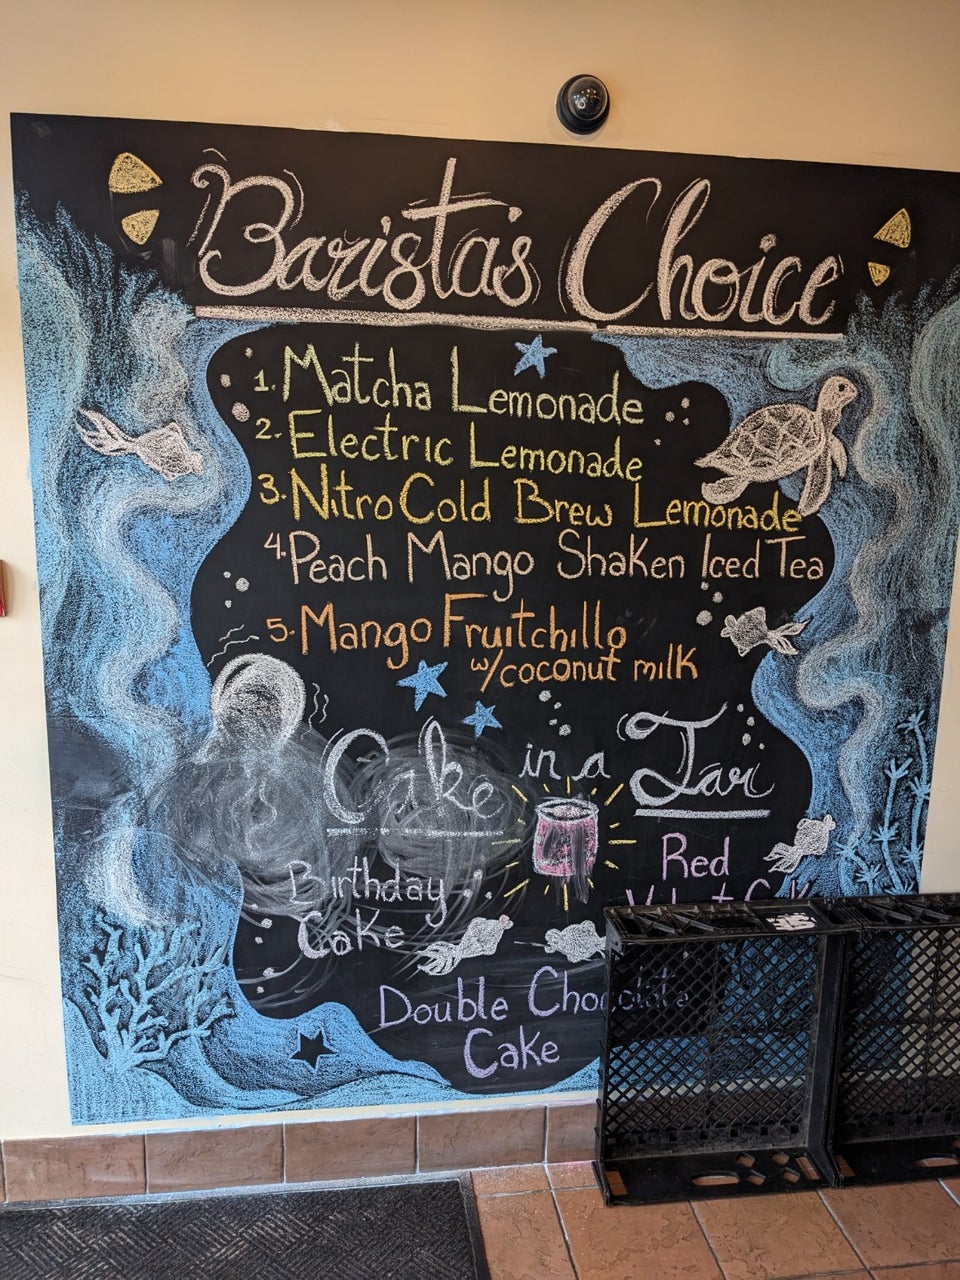 Barista's Choice
1. Matcha Lemonade
2. Electric Lemonade
3. Nitro Cold Brew Lemonade
4. Peach Mango Shaken Iced Tea
5. Mango Fruitchillo
w/coconut milk
Cake in a Jar
Birthday
Cake
Red
Velvet Cake
Double Chocolate
Cake